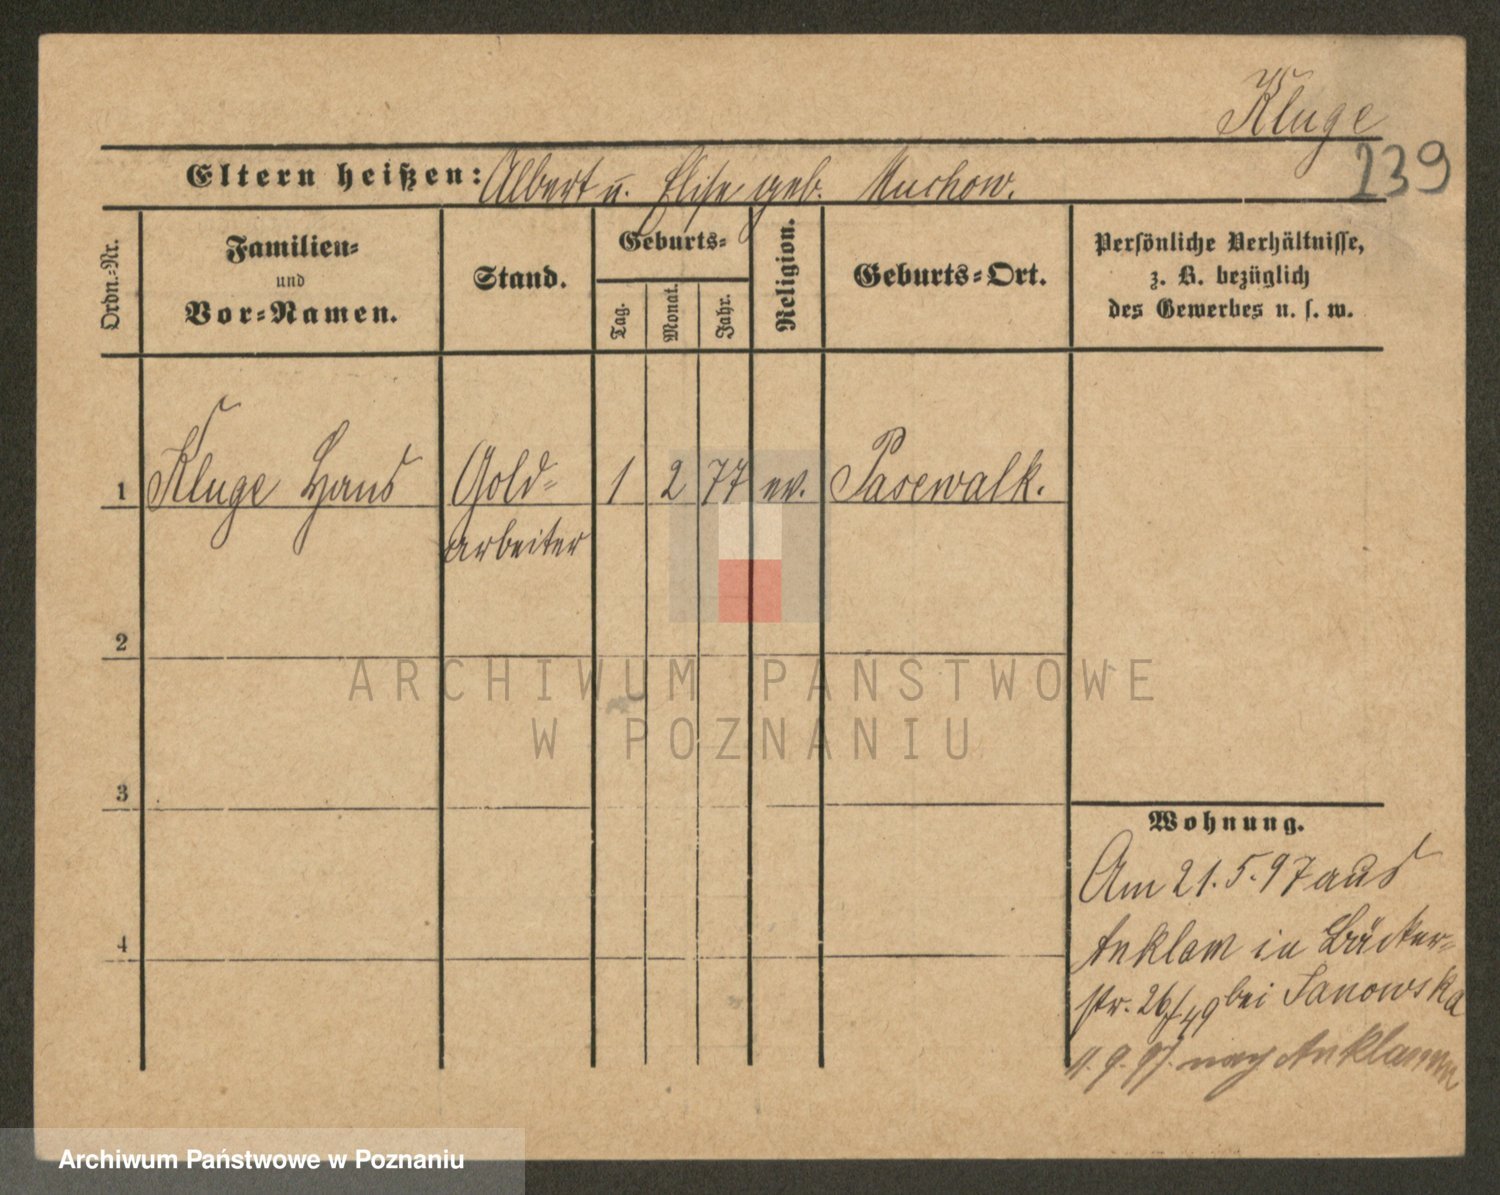 Kluge
239
Eltern heißen: Albert u. Elise geb. Muchow.
Ordn.-Nr.
Familien-
und
Vor-Namen.
Stand.
Geburts-
Tag.
Monat.
Jahr.
Religion.
Geburts-Ort.
Persönliche Verhältnisse,
z. B. bezüglich
des Gewerbes u. s. w.
1 Kluge Hans Gold- 1 2 77 ev. Pasewalk.
arbeiter
2
3
4
Wohnung.
Am 21.5.97 aus
Anklam in Bäcker-
str. 26/49 bei Janowska
11.9.97. nach Anklamm
ARCHIWUM PAŃSTWOWE
W POZNANIU
Archiwum Państwowe w Poznaniu